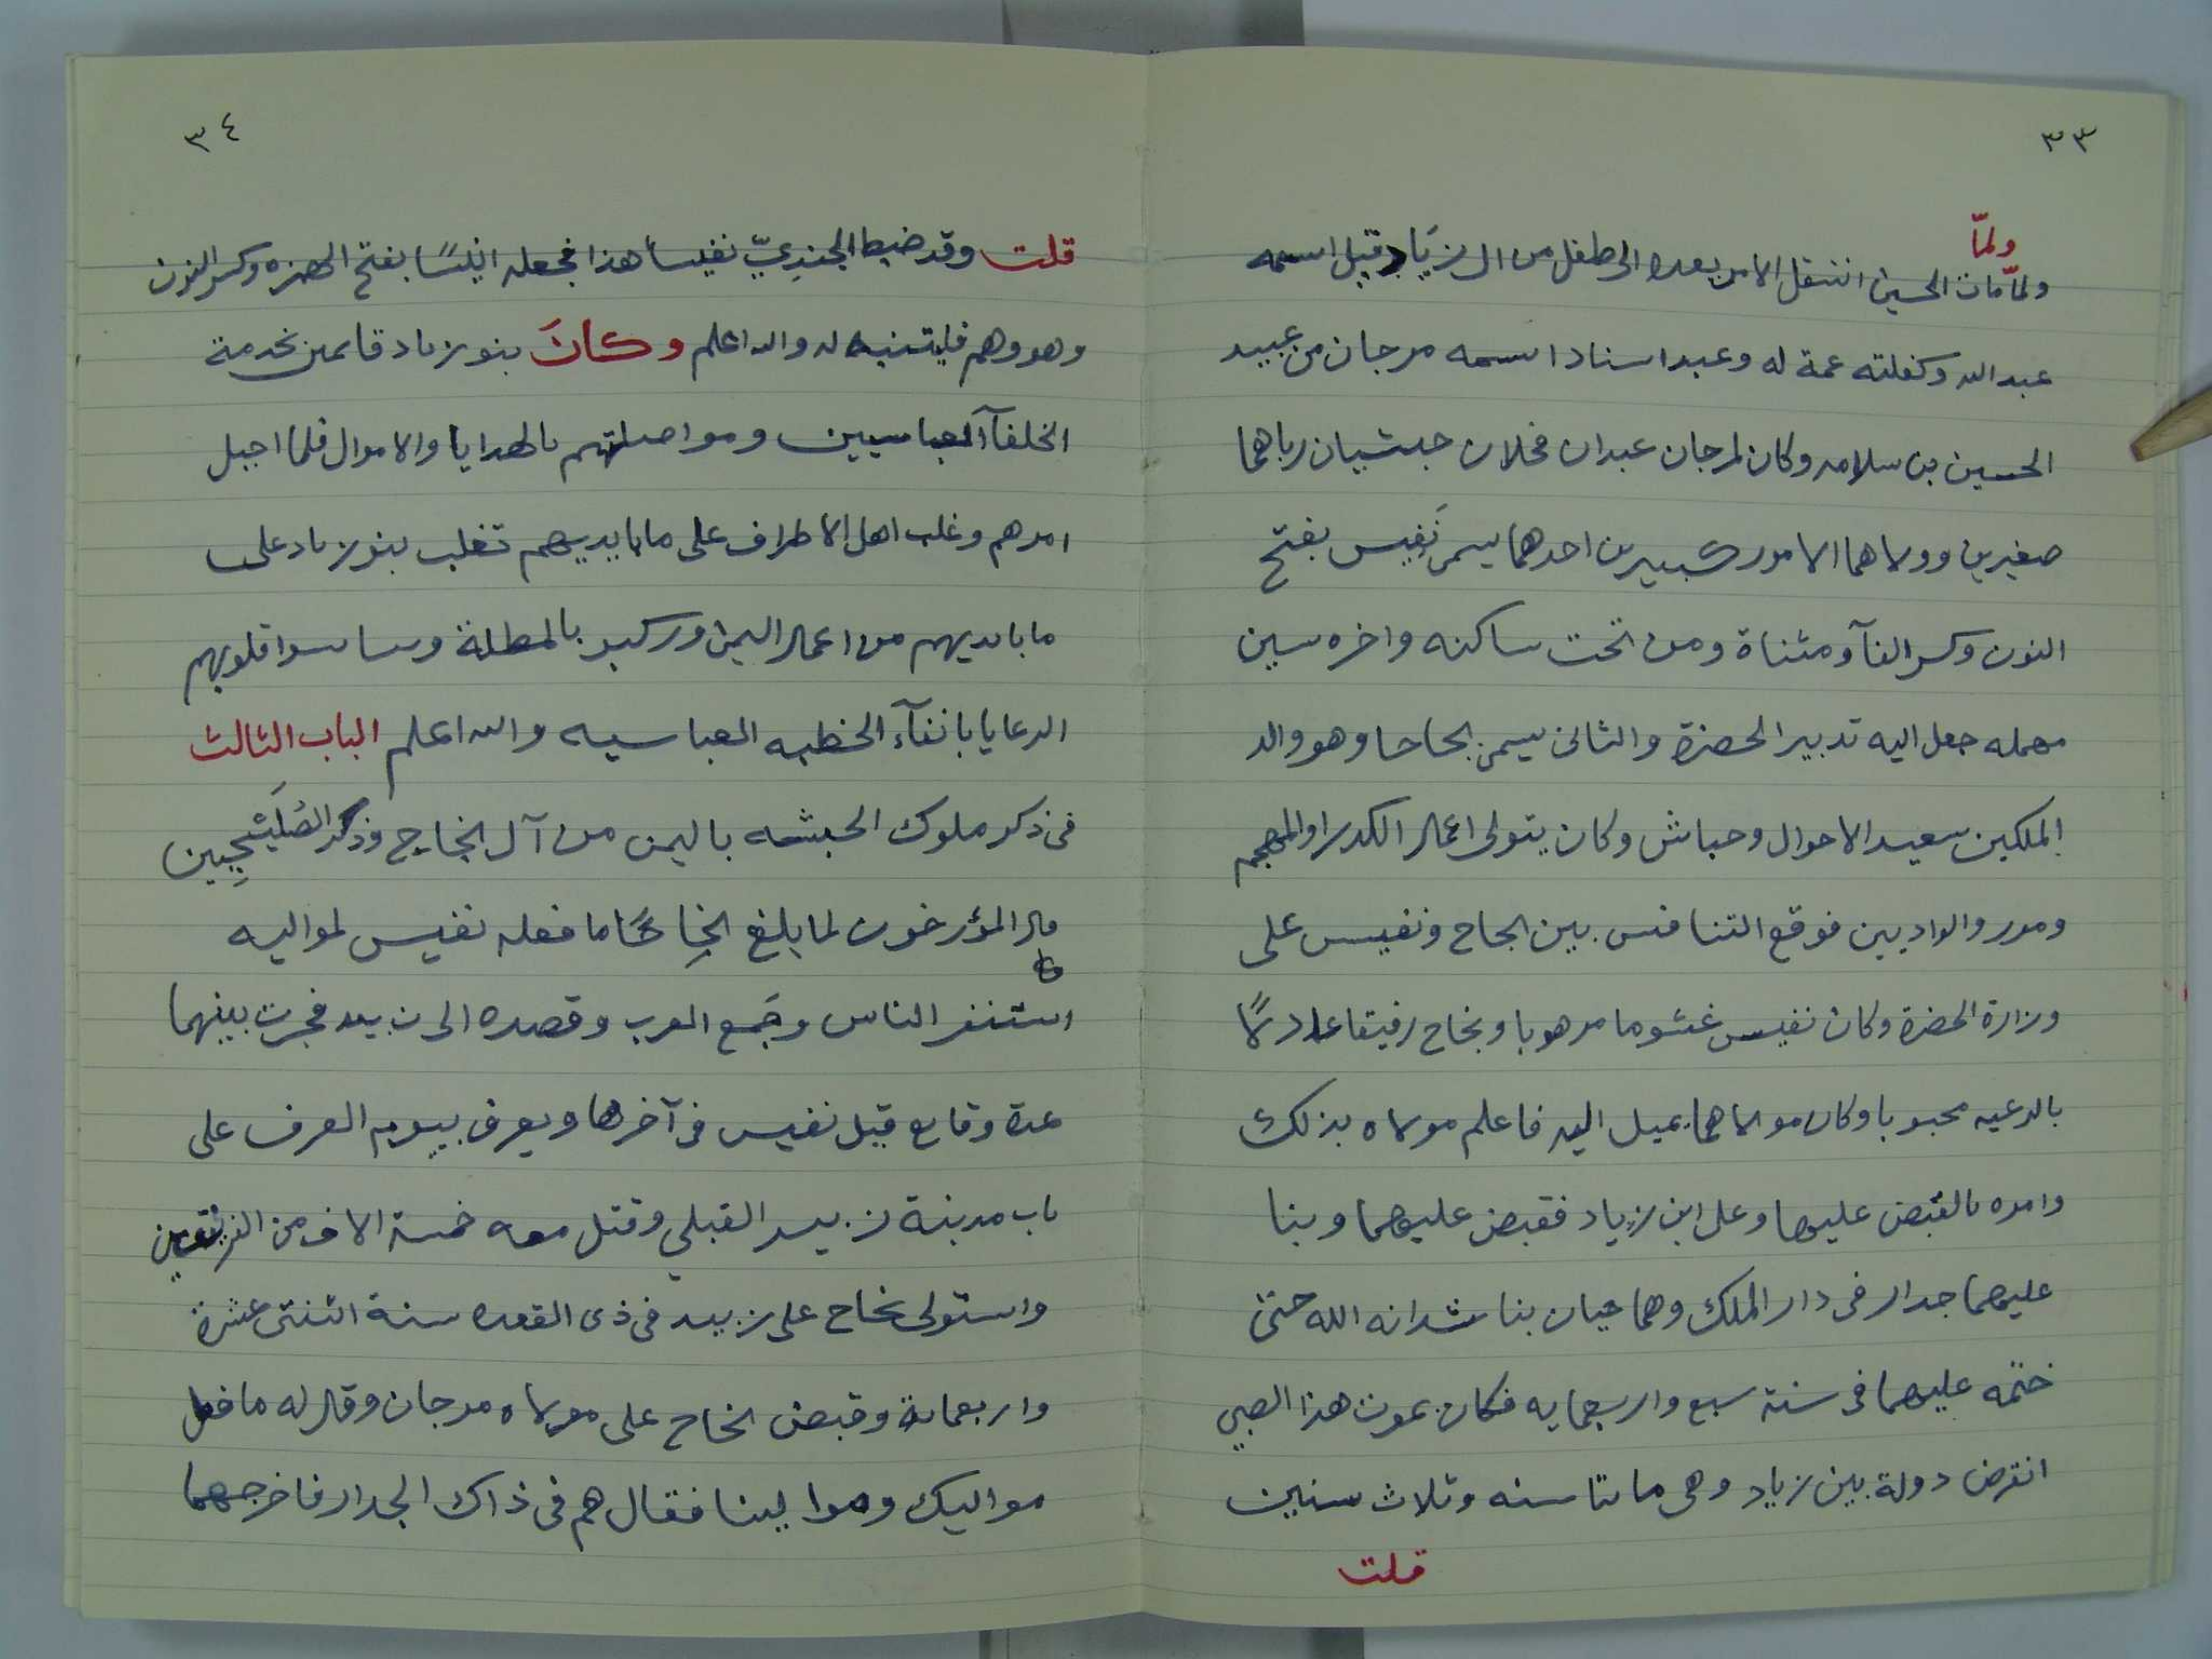 ٣٣
ولمّا
ولمّا مات الحسين انتقل الامر بعده الى طفل من ال زيَاد قيل اسمه
عبد الله وكفلته عمة له وعبد استاد اسمه مرجان من عبيد
الحسين بن سلامه وكان لمرجان عبدان فحلان حبشيان رباهما
صغيرين وولاهما الامور كبيرين احدهما يسمى نَفيس بفتح
النون وكسر الفآ ومثناة ومن تحت ساكنه واخره سين
مهمله جعل اليه تدبير الحضرة والثانى يسمى نجاحا وهو والد
الملكين سعيد الاحوال وحباش وكان يتولى اعمال الكدرا والمهجم
ومور والواديين فوقع التنافس بين نجاح ونفيس على
وزارة الحضرة وكان نفيس غشوما مرهوبا ونجاح رفيقا عادلًا
بالرعيه محبوبا وكان مولاهما يميل اليه فاعلم مولاه بذلك
وامره بالقبض عليها وعلى ابن زياد فقبض عليهما وبنا
عليهما جدار فى دار الملك وهما حيان يناشدانه الله حتى
ختمه عليهما فى سنة سبع واربعمايه فكان بموت هذا الصبي
انقرض دولة بين زياد وهى ماتتا سنه وثلاث سنين
قلت
٣٤
قلت وقد ضبط الجنديّ نفيسا هذا فجعله انيسًا بفتح الهمزه وكسر النون
وهو وهم فليتنبه له والله اعلم وكانَ بنو زياد قايمين بخدمة
الخلفآ العباسيين ومواصلتهم بالهدايا والاموال فلما اجبل
امرهم وغلب اهل الاطراف على ما بايديهم تغلب بنو زياد على
ما بايديهم من اعمال اليمن وركبو بالمظلة وساسوا قلوبهم
الرعايا بانفآء الخطبه العباسيه والله اعلم الباب الثالث
فى ذكر ملوك الحبشه باليمن من آل نجاح وذكر الصُلَيْحِيين
قال المؤرخون لما بلغ نجاحًا ما فعله نفيس لمواليه
استنفر الناس وجَمع العرب وقصده الى زبيد فجرت بينهما
عدة وقايع قتل نفيس فى آخرها ويعرف بيوم العرف على
باب مدينة زبيد القبلي وقتل معه خمسة الاف من الفريقين
واستولى نجاح على زبيد فى ذى القعده سنة اثنتى عشرة
واربعماية وقبض نجاح على مولاه مرجان وقال له ما فعل
مواليك وموالينا فقال هم فى ذاك الجدار فاخرجهما